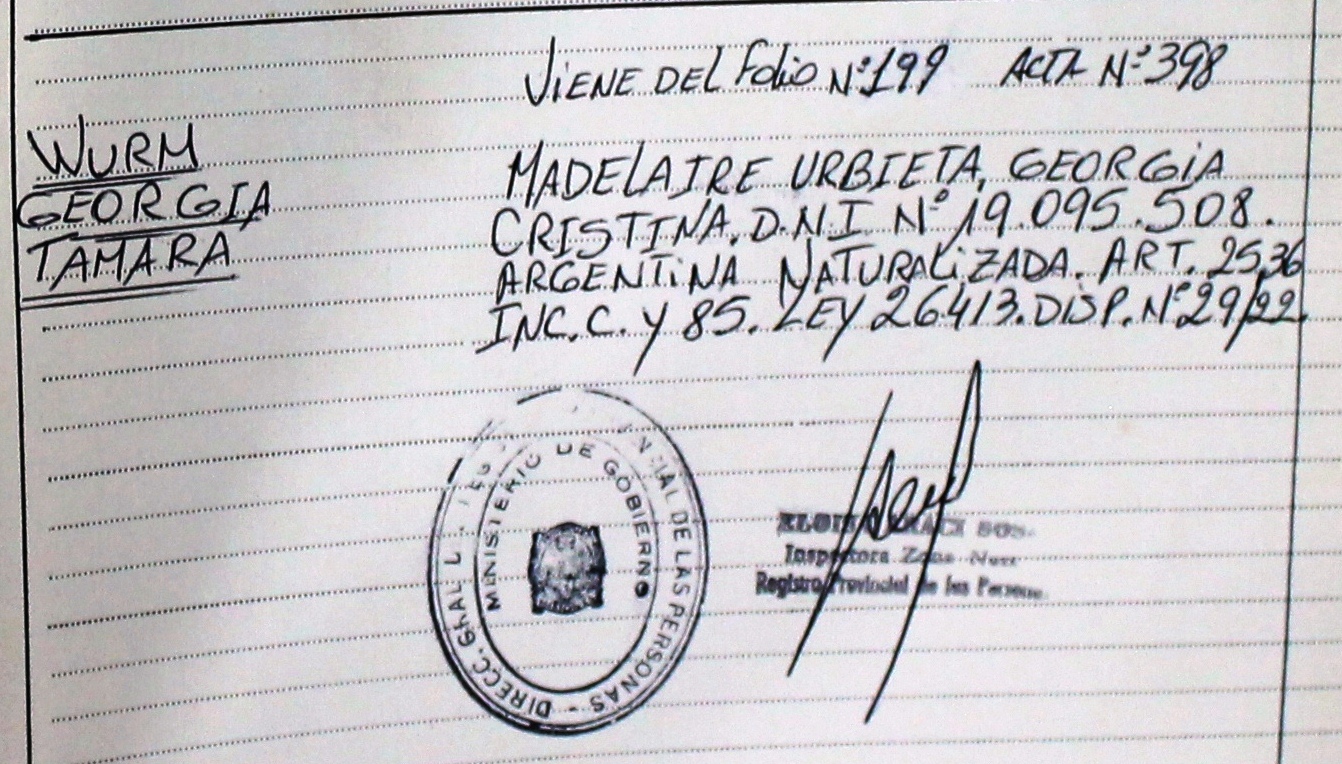 Viene del Folio N° 199 Acta N° 398
WURM
GEORGIA
TAMARA
MADELAIRE URBIETA, GEORGIA
CRISTINA. D.N.I N° 19.095.508.
ARGENTINA NATURALIZADA. ART. 2536
INC. C. Y 85. LEY 26413. DISP. N° 29/22.
DIRECC. GRAL DE LAS PERSONAS -
MINISTERIO DE GOBIERNO
Inspectora Zona
Registro Provincial de las